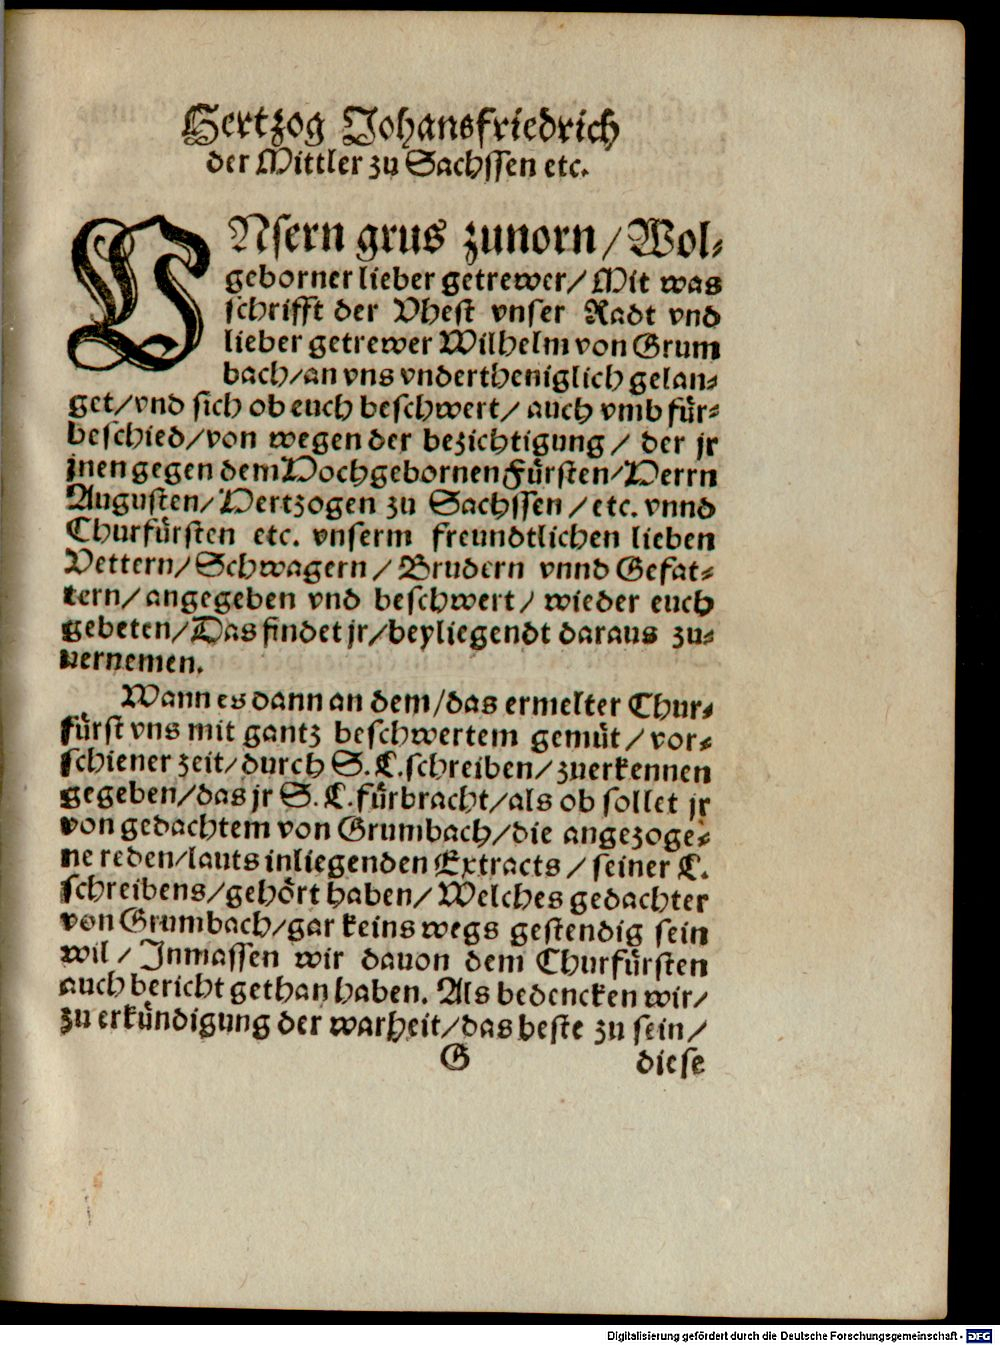 Hertzog Johansfriedrich
der Mittler zu Sachssen etc.
VNsern grus zuuorn / Wol⸗
geborner lieber getrewer / Mit was
schrifft der Vhest vnser Radt vnd
lieber getrewer Wilhelm von Grum
bach / an vns vndertheniglich gelan⸗
get / vnd sich ob euch beschwert / auch vmb für⸗
beschied / von wegen der bezichtigung / der jr
jnen gegen dem Hochgebornen Fürsten / Herrn
Augusten / Hertzogen zu Sachssen / etc. vnnd
Churfürsten etc. vnserm freundtlichen lieben
Vettern / Schwagern / Brudern vnnd Gefat⸗
tern / angegeben vnd beschwert / wieder euch
gebeten / Das findet jr / beyliegendt daraus zu⸗
uernemen.
Wann es dann an dem / das ermelter Chur⸗
fürst vns mit gantz beschwertem gemüt / vor⸗
schiener zeit / durch S. L. schreiben / zuerkennen
gegeben / das jr S. L. fürbracht / als ob sollet jr
von gedachtem von Grumbach / die angezoge⸗
ne reden / lauts inliegenden Extracts / seiner L.
schreibens / gehört haben / Welches gedachter
von Grumbach / gar keins wegs gestendig sein
wil / Inmassen wir dauon dem Churfürsten
auch bericht gethan haben. Als bedencken wir /
zu erkündigung der warheit / das beste zu sein /
G diese
Digitalisierung gefördert durch die Deutsche Forschungsgemeinschaft - DFG